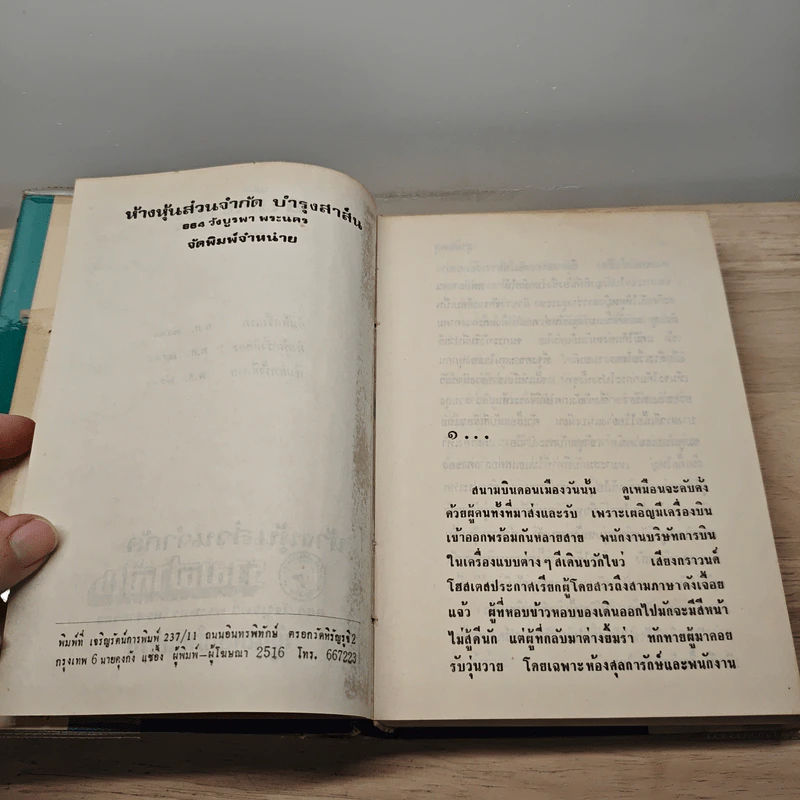 ห้างหุ้นส่วนจำกัด บำรุงสาส์น
664 วังบูรพา พระนคร
จัดพิมพ์จำหน่าย
พิมพ์ที่ เจริญรัตน์การพิมพ์ 237/11 ถนนอินทรพิทักษ์ ตรอกวัดหิรัญรูจี 2
กรุงเทพ 6 นายคุงกัง แซ่อึ้ง ผู้พิมพ์-ผู้โฆษณา 2516 โทร. 667223
๑...
สนามบินดอนเมืองวันนั้น ดูเหมือนจะคับคั่ง
ด้วยผู้คนทั้งที่มาส่งและรับ เพราะเผอิญมีเครื่องบิน
เข้าออกพร้อมกันหลายสาย พนักงานบริษัทการบิน
ในเครื่องแบบต่าง ๆ สีเดินขวักไขว่ เสียงกราวนด์
โฮสเตสประกาศเรียกผู้โดยสารถึงสามภาษาดังเจื้อย
แจ้ว ผู้ที่หอบข้าวหอบของเดินออกไปมักจะมีสีหน้า
ไม่สู้ดีนัก แต่ผู้ที่กลับมาต่างยิ้มร่า ทักทายผู้มาคอย
รับวุ่นวาย โดยเฉพาะห้องศุลการักษ์และพนักงาน